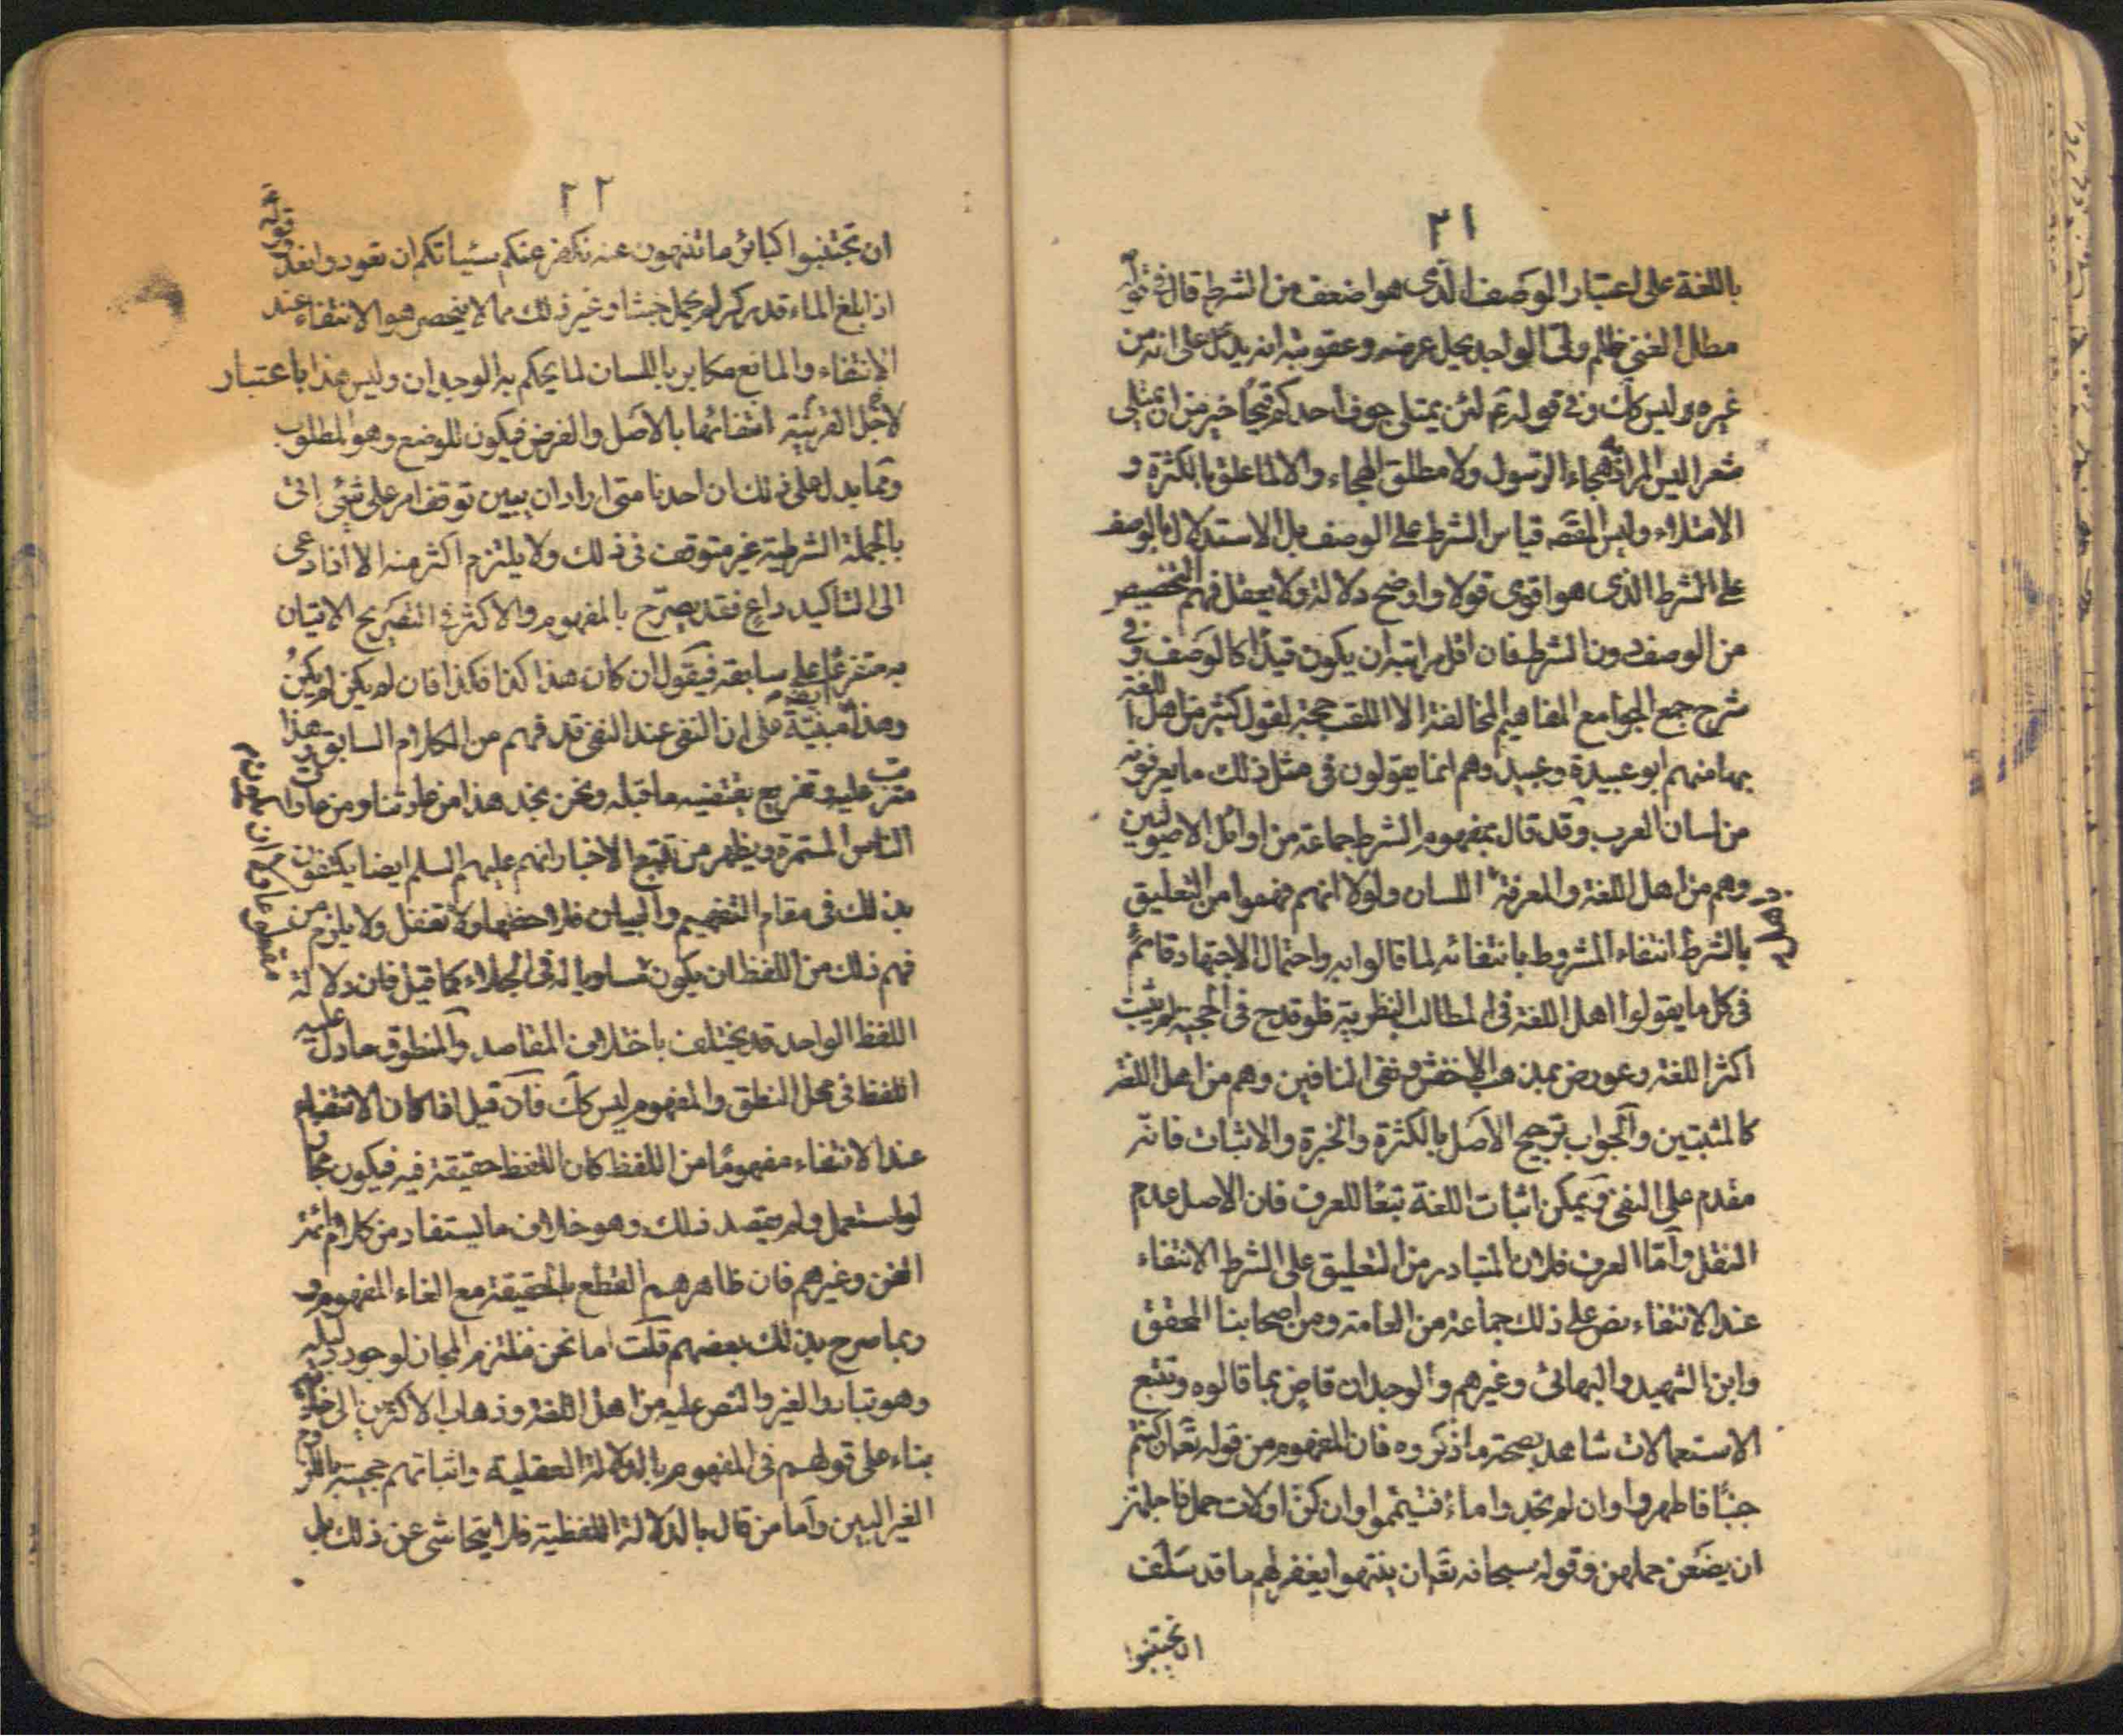 ٢١
باللغة على اعتبار الوصف الذى هو اضعف من الشرط قال فى قوله
مطل الغنى ظلم ولىّ الواجد يحل عرضه وعقوبته انه يدل على انه من
غيره ليس كك وفى قوله ع لئن يمتلى جوف احدكم قيحًا خير من ان يمتلى
شعرا ليس المراد هجاء الرسول ولا مطلق الهجاء والا لما علق بالكثرة و
الامتلاء وليس المقصه قياس الشرط على الوصف بل الاستدلال بالوصف
على الشرط الذى هو اقوى قولا واوضح دلالة ولا يعقل فهم التخصيص
من الوصف دون الشرط فان اقل مراتبه ان يكون قيدًا كالوصف وفى
شرح جمع الجوامع المفاهيم المخالفة الا اللقب حجة لقول كثير من اهل اللغة
بها منهم ابو عبيدة وعبيد وهم انما يقولون فى مثل ذلك ما يعرفونه
من لسان العرب وقد قال بمفهوم الشرط جماعة من اوائل الاصوليين
وهم من اهل اللغة والمعرفة اللسان ولولا انهم فهموا من التعليق
بالشرط انتفاء المشروط بانتفائه لما قالوا به واحتمال الاجتهاد قائم
فى كل ما يقولوا اهل اللغة فى المطالب النظرية فلو قدح فى الحجية لم يثبت
اكثر اللغة وعورض بمذهب الاخفش ونفى النافين وهم من اهل اللغة
كالمثبتين والجواب ترجيح الاصل بالكثرة والخبرة والاثبات فانه
مقدم على النفى ويمكن اثبات اللغة تبعًا للعرف فان الاصل عدم
النقل وامّا العرف فلان المتبادر من التعليق على الشرط الانتفاء
عند الانتفاء نص على ذلك جماعة من العامة ومن اصحابنا المحقق
وابن الشهيد والبهائى وغيرهم والوجدان قاض بما قالوه وتتبع
الاستعمالات شاهد بصحة ما ذكروه فان المفهوم من قوله تعه ان كنتم
جنبًا فاطهروا وان لم تجدوا ماء فتيمموا وان كن اولات حمل فاجلهن
ان يضعن حملهن وقوله سبحانه تعه ان ينتهوا يغفر لهم ما قد سلف
ان تجتنبوا
٢٢
ان تجتنبوا كبائر ما تنهون عنه نكفر عنكم سيئاتكم ان تعودوا نعد
اذا بلغ الماء قدر كر لم يحمل خبثا وغير ذلك مما لا يخصى هو الانتفاء عند
الانتفاء والمانع مكابر باللسان لما يحكم به الوجدان وليس هذا باعتبار
لاجل القرينة انتفائها بالاصل والفرض فيكون للوضع وهو المطلوب
ومما يدل على ذلك ان احدنا متى اراد ان يبين توقف امر على شئ اتى
بالجملة الشرطية غير متوقف فى ذلك ولا يلتزم اكثر منه الا اذا دعى
الى التاكيد داعٍ فقد يصرّح بالمفهوم والاكثر فى التصريح الاتيان
به متفرعًا على سابقه فيقول ان كان هذا كذا فكذا فان لم يكن لم يكن
وهذا مبنية على ان النفى عند النفى قد فهم من الكلام السابق وهذا
مترتب عليه وتفريع يقتضيه ما قبله ونحن نجد هذا من عادتنا ومن عادات
الناس المستمرة ويظهر من تتبع الاخبار انهم عليهم السلم ايضا يكتفون
بذلك فى مقام التفهيم والبيان فلاحظها ولا تغفل ولا يلزم من
فهم ذلك من اللفظ ان يكون مساويا له فى الجلاء كما قيل فان دلالة
اللفظ الواحد قد يختلف باختلاف المقاصد والمنطوق ما دل عليه
اللفظ فى محل النطق والمفهوم ليس كك فان قيل اذا كان الانتفاء
عند الانتفاء مفهومًا من اللفظ كان اللفظ حقيقة فيه فيكون مجازا
لو استعمل ولم يقصد ذلك وهو خلاف ما يستفاد من كلام ائمة
الفن وغيرهم فان ظاهرهم القطع بالحقيقة مع الغاء المفهوم و
ربما صرح بذلك بعضهم قلت اما نحن فنلتزم المجاز لوجود دليله
وهو تبادر الغير والنص عليه من اهل اللغة وذهاب الاكثرين الى خلافه
بناء على قولهم فى المفهوم بالدلالة العقلية واثباتهم حجيته باللزوم
الغير البين واما من قال بالدلالة اللفظية فلا يتحاشى عن ذلك بل